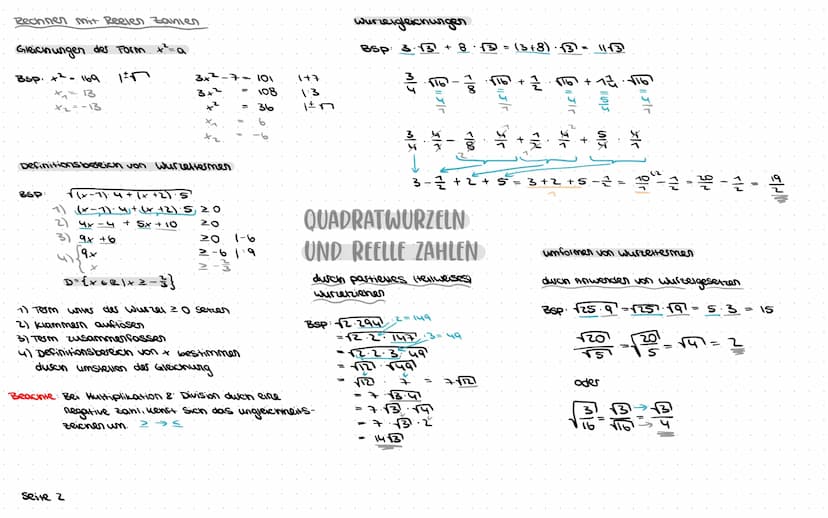 Rechnen mit Reelen Zahlen
Gleichungen der Form x²=a
Bsp. x² = 169 | ±√
x₁ = 13
x₂ = -13
3x² - 7 = 101 | +7
3x² = 108 | :3
x² = 36 | ±√
x₁ = 6
x₂ = -6
Definitionsbereich von Wurzeltermen
BSP √(x-1)·4+(x+2)·5
1) (x-1)·4+(x+2)·5 ≥ 0
2) 4x-4 + 5x+10 ≥ 0
3) 9x +6 ≥ 0 | -6
4) { 9x ≥ -6 | :9
x ≥ -2/3
D = {x ∈ ℝ | x ≥ -2/3}
1) Term unter der Wurzel ≥ 0 setzen
2) Klammern auflösen
3) Term zusammenfassen
4) Definitionsbereich von x bestimmen
durch umstellen der Gleichung
Beachte: Bei Multiplikation & Division durch eine
negative Zahl kehrt sich das ungleichheits-
zeichen um. ≥ → ≤
Seite 2
Wurzelgleichungen
Bsp. 3·√3 + 8·√3 = (3+8)·√3 = 11√3
3/4 · √16 - 1/8 · √16 + 1/2 · √16 + 1 1/4 · √16
4/1 4/1 4/1 5/4 4/1
3/4 · 4/1 - 1/8 · 4/1 + 1/2 · 4/1 + 5/4 · 4/1
3 - 1/2 + 2 + 5 = 3+2+5 - 1/2 = 10/1 ·2 - 1/2 = 20/2 - 1/2 = 19/2
QUADRATWURZELN
UND REELLE ZAHLEN
durch partielles (teilweises)
Wurzelziehen
Bsp. √2·294 :2=149
= √2·2·147 :3=49
= √2·2·3·49
= √12 · √49
= √12 · 7 = 7√12
= 7 · √3·4
= 7·√3 · √4
= 7 · √3 · 2
= 14√3
umformen von Wurzeltermen
durch Anwenden von Wurzelgesetzen
Bsp. √25·9 = √25 · √9 = 5·3 = 15
√20/√5 = √20/5 = √4 = 2
oder
√3/16 = √3/√16 → √3/4